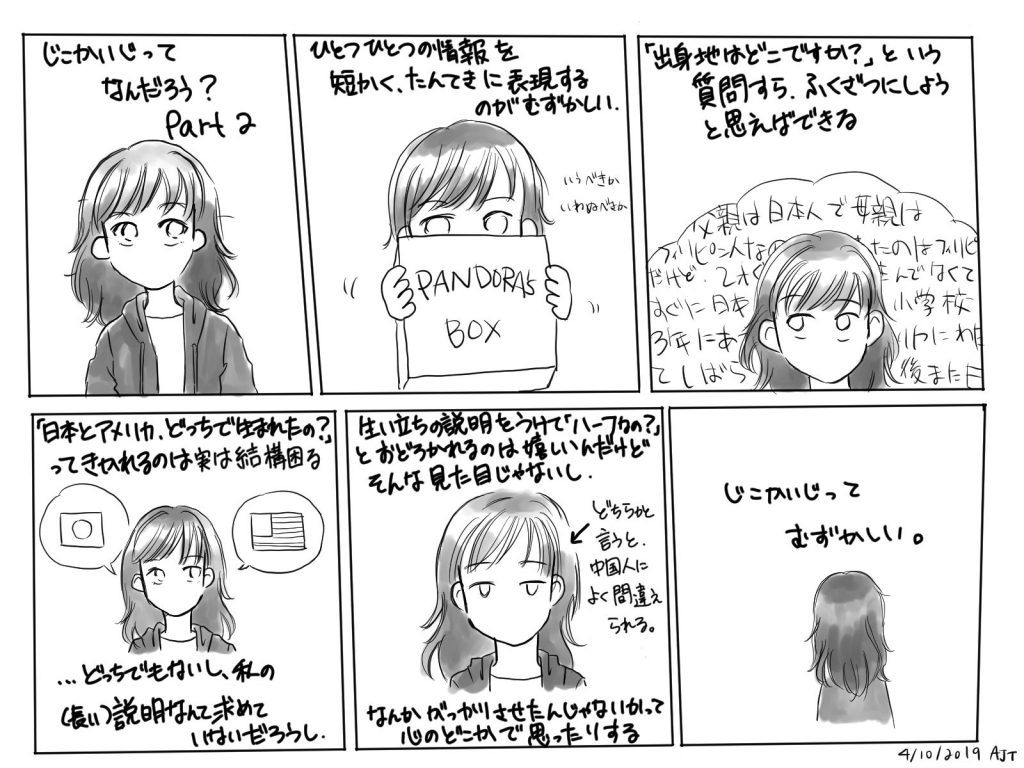 じこかいじって
なんだろう?
Part 2
ひとつひとつの情報を
短かく、たんてきに表現する
のがむずかしい.
いうべきか
いわぬべきか
PANDORA's
BOX
「出身地はどこですか?」という
質問すら、ふくざつにしよう
と思えばできる
父親は日本人で母親は
フィリピン人なの たのはフィリピ
だけど、2才 んでなくて
すぐに日本 小学校
3年にあ
てしばら 後また日
「日本とアメリカ、どっちで生まれたの?」
ってきかれるのは実は結構困る
...どっちでもないし、私の
(長い)説明なんて求めて
いないだろうし.
生い立ちの説明をうけて「ハーフなの?」
とおどろかれるのは嬉しいんだけど
そんな見た目じゃないし.
どちらかと
言うと、
中国人に
よく間違え
られる。
なんかがっかりさせたんじゃないかって
心のどこかで思ったりする
じこかいじって
むずかしい。
4/10/2019 AJT